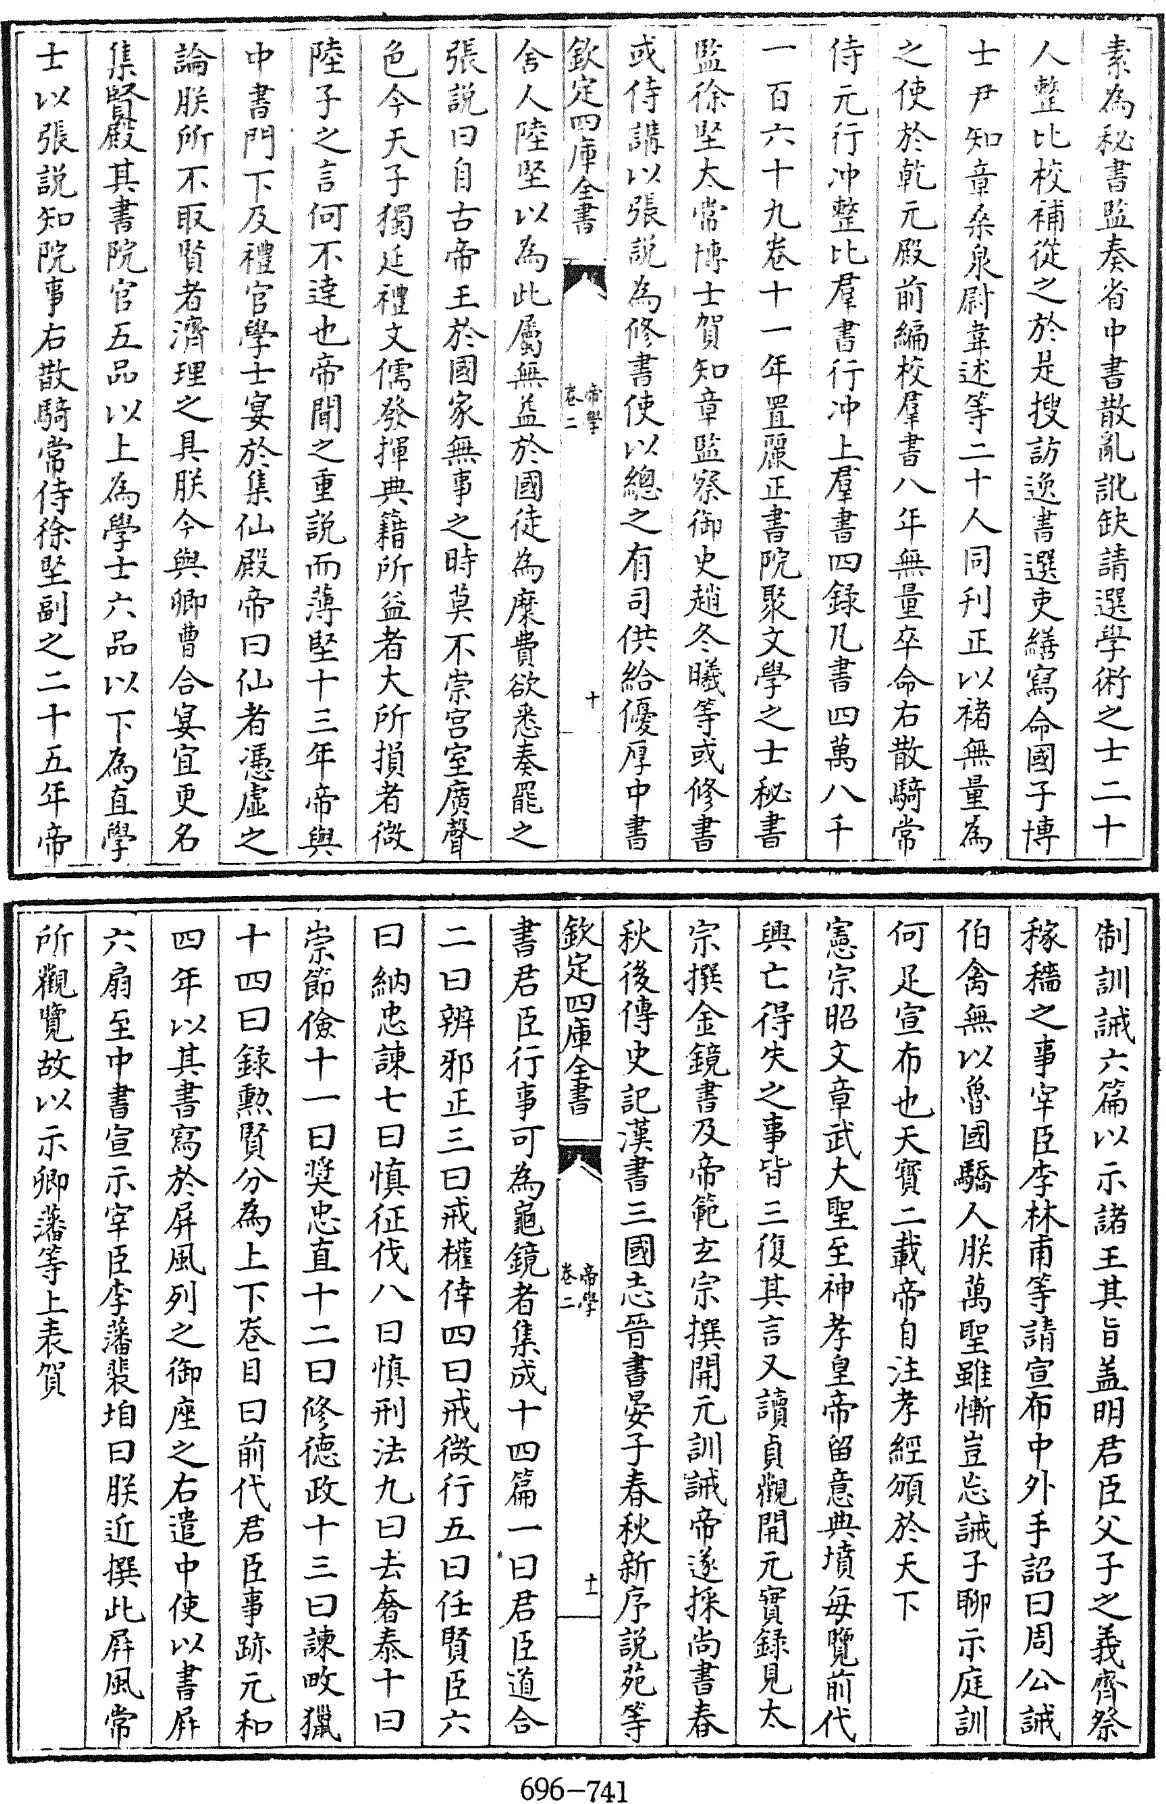 素為秘書監奏省中書散亂訛缺請選學術之士二十
人整比校補從之於是搜訪逸書選吏繕寫命國子博
士尹知章桑泉尉韋述等二十人同刋正以褚無量為
之使於乾元殿前編校羣書八年無量卒命右散騎常
侍元行冲整比羣書行冲上羣書四録凡書四萬八千
一百六十九卷十一年置麗正書院聚文學之士秘書
監徐堅太常博士賀知章監察御史趙冬曦等或修書
或侍講以張説為修書使以總之有司供給優厚中書
欽定四庫全書
帝學
卷二
十
舍人陸堅以為此屬無益於國徒為糜費欲悉奏罷之
張説曰自古帝王於國家無事之時莫不崇宫室廣聲
色今天子獨延禮文儒發揮典籍所益者大所損者微
陸子之言何不達也帝聞之重説而薄堅十三年帝與
中書門下及禮官學士宴於集仙殿帝曰仙者憑虛之
論朕所不取賢者濟理之具朕今與卿曹合宴宜更名
集賢殿其書院官五品以上為學士六品以下為直學
士以張説知院事右散騎常侍徐堅副之二十五年帝
制訓誡六篇以示諸王其旨盖明君臣父子之義齊祭
稼穡之事宰臣李林甫等請宣布中外手詔曰周公誡
伯禽無以魯國驕人朕萬聖雖慚豈忘誡子聊示庭訓
何足宣布也天寳二載帝自注孝經頒於天下
憲宗昭文章武大聖至神孝皇帝留意典墳每覽前代
興亡得失之事皆三復其言又讀貞觀開元實録見太
宗撰金鏡書及帝範玄宗撰開元訓誡帝遂採尚書春
秋後傳史記漢書三國志晉書晏子春秋新序説苑等
欽定四庫全書
帝學
卷二
十一
書君臣行事可為龜鏡者集成十四篇一曰君臣道合
二曰辨邪正三曰戒權倖四曰戒微行五曰任賢臣六
曰納忠諫七曰慎征伐八曰慎刑法九曰去奢泰十曰
崇節儉十一曰奬忠直十二曰修德政十三曰諫畋獵
十四曰録勲賢分為上下卷目曰前代君臣事跡元和
四年以其書寫於屏風列之御座之右遣中使以書屏
六扇至中書宣示宰臣李藩裴垍曰朕近撰此屏風常
所觀覽故以示卿藩等上表賀
696-741